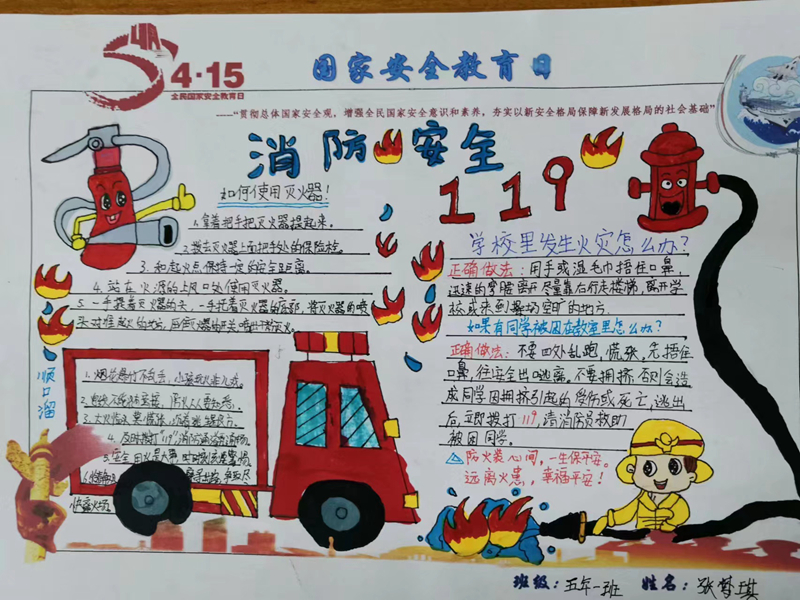 4·15
全民国家安全教育日
国家安全教育日
——“贯彻总体国家安全观，增强全民国家安全意识和素养，夯实以新安全格局保障新发展格局的社会基础”
消防安全
119
如何使用灭火器！
1.拿着把手把灭火器提起来。
2.拨去灭火器上面把手处的保险栓。
3.和起火点保持一定的安全距离。
4.站在火源的上风口处使用灭火器。
5.一手提着灭火器的 一手托着灭火器的底部，将灭火器的喷
头对准起火的地方，
学校里发生火灾怎么办？
正确做法：用手或湿毛巾捂住口鼻，
迅速的弯腰离开尽量靠右行走楼梯，离开学
校或来到操场空旷的地方.
如果有同学被困在教室里怎么办？
正确做法：不要四处乱跑，慌张，先捂住
口鼻，往安全出口逃离。不要拥挤，否则会造
成同学因拥挤引起的受伤或死亡，逃出
后，立即拨打119，请消防员救助
被困同学。
防火装心间，一生保平安。
远离火患，幸福平安！
顺口溜
1.烟花爆竹不乱丢，小孩玩火
2.
3.大火临头莫慌张，
4.及时拨打"119"，
5.安全用火是大事，
班级：五年一班 姓名：张梦琪